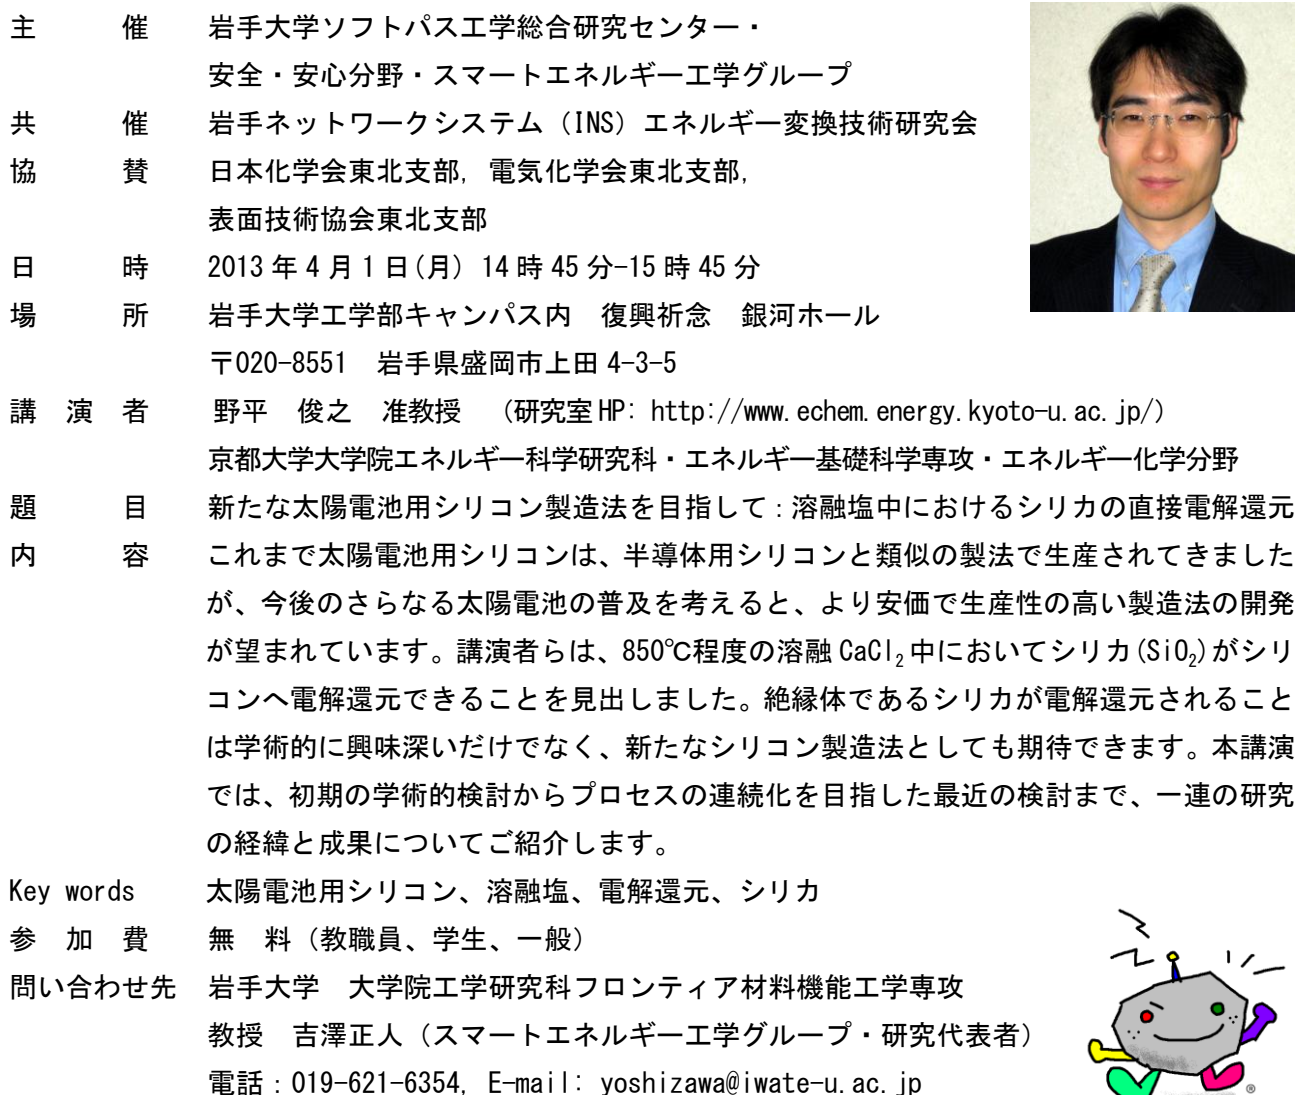 主　催　岩手大学ソフトパス工学総合研究センター・
安全・安心分野・スマートエネルギー工学グループ
共　催　岩手ネットワークシステム（INS）エネルギー変換技術研究会
協　賛　日本化学会東北支部, 電気化学会東北支部,
表面技術協会東北支部
日　時　2013年4月1日(月) 14時45分-15時45分
場　所　岩手大学工学部キャンパス内　復興祈念　銀河ホール
〒020-8551　岩手県盛岡市上田4-3-5
講 演 者　野平　俊之　准教授　（研究室HP: http://www.echem.energy.kyoto-u.ac.jp/）
京都大学大学院エネルギー科学研究科・エネルギー基礎科学専攻・エネルギー化学分野
題　目　新たな太陽電池用シリコン製造法を目指して：溶融塩中におけるシリカの直接電解還元
内　容　これまで太陽電池用シリコンは、半導体用シリコンと類似の製法で生産されてきました
が、今後のさらなる太陽電池の普及を考えると、より安価で生産性の高い製造法の開発
が望まれています。講演者らは、850℃程度の溶融CaCl₂中においてシリカ(SiO₂)がシリ
コンへ電解還元できることを見出しました。絶縁体であるシリカが電解還元されること
は学術的に興味深いだけでなく、新たなシリコン製造法としても期待できます。本講演
では、初期の学術的検討からプロセスの連続化を目指した最近の検討まで、一連の研究
の経緯と成果についてご紹介します。
Key words　太陽電池用シリコン、溶融塩、電解還元、シリカ
参 加 費　無　料（教職員、学生、一般）
問い合わせ先　岩手大学　大学院工学研究科フロンティア材料機能工学専攻
教授　吉澤正人（スマートエネルギー工学グループ・研究代表者）
電話：019-621-6354, E-mail: yoshizawa@iwate-u.ac.jp
®